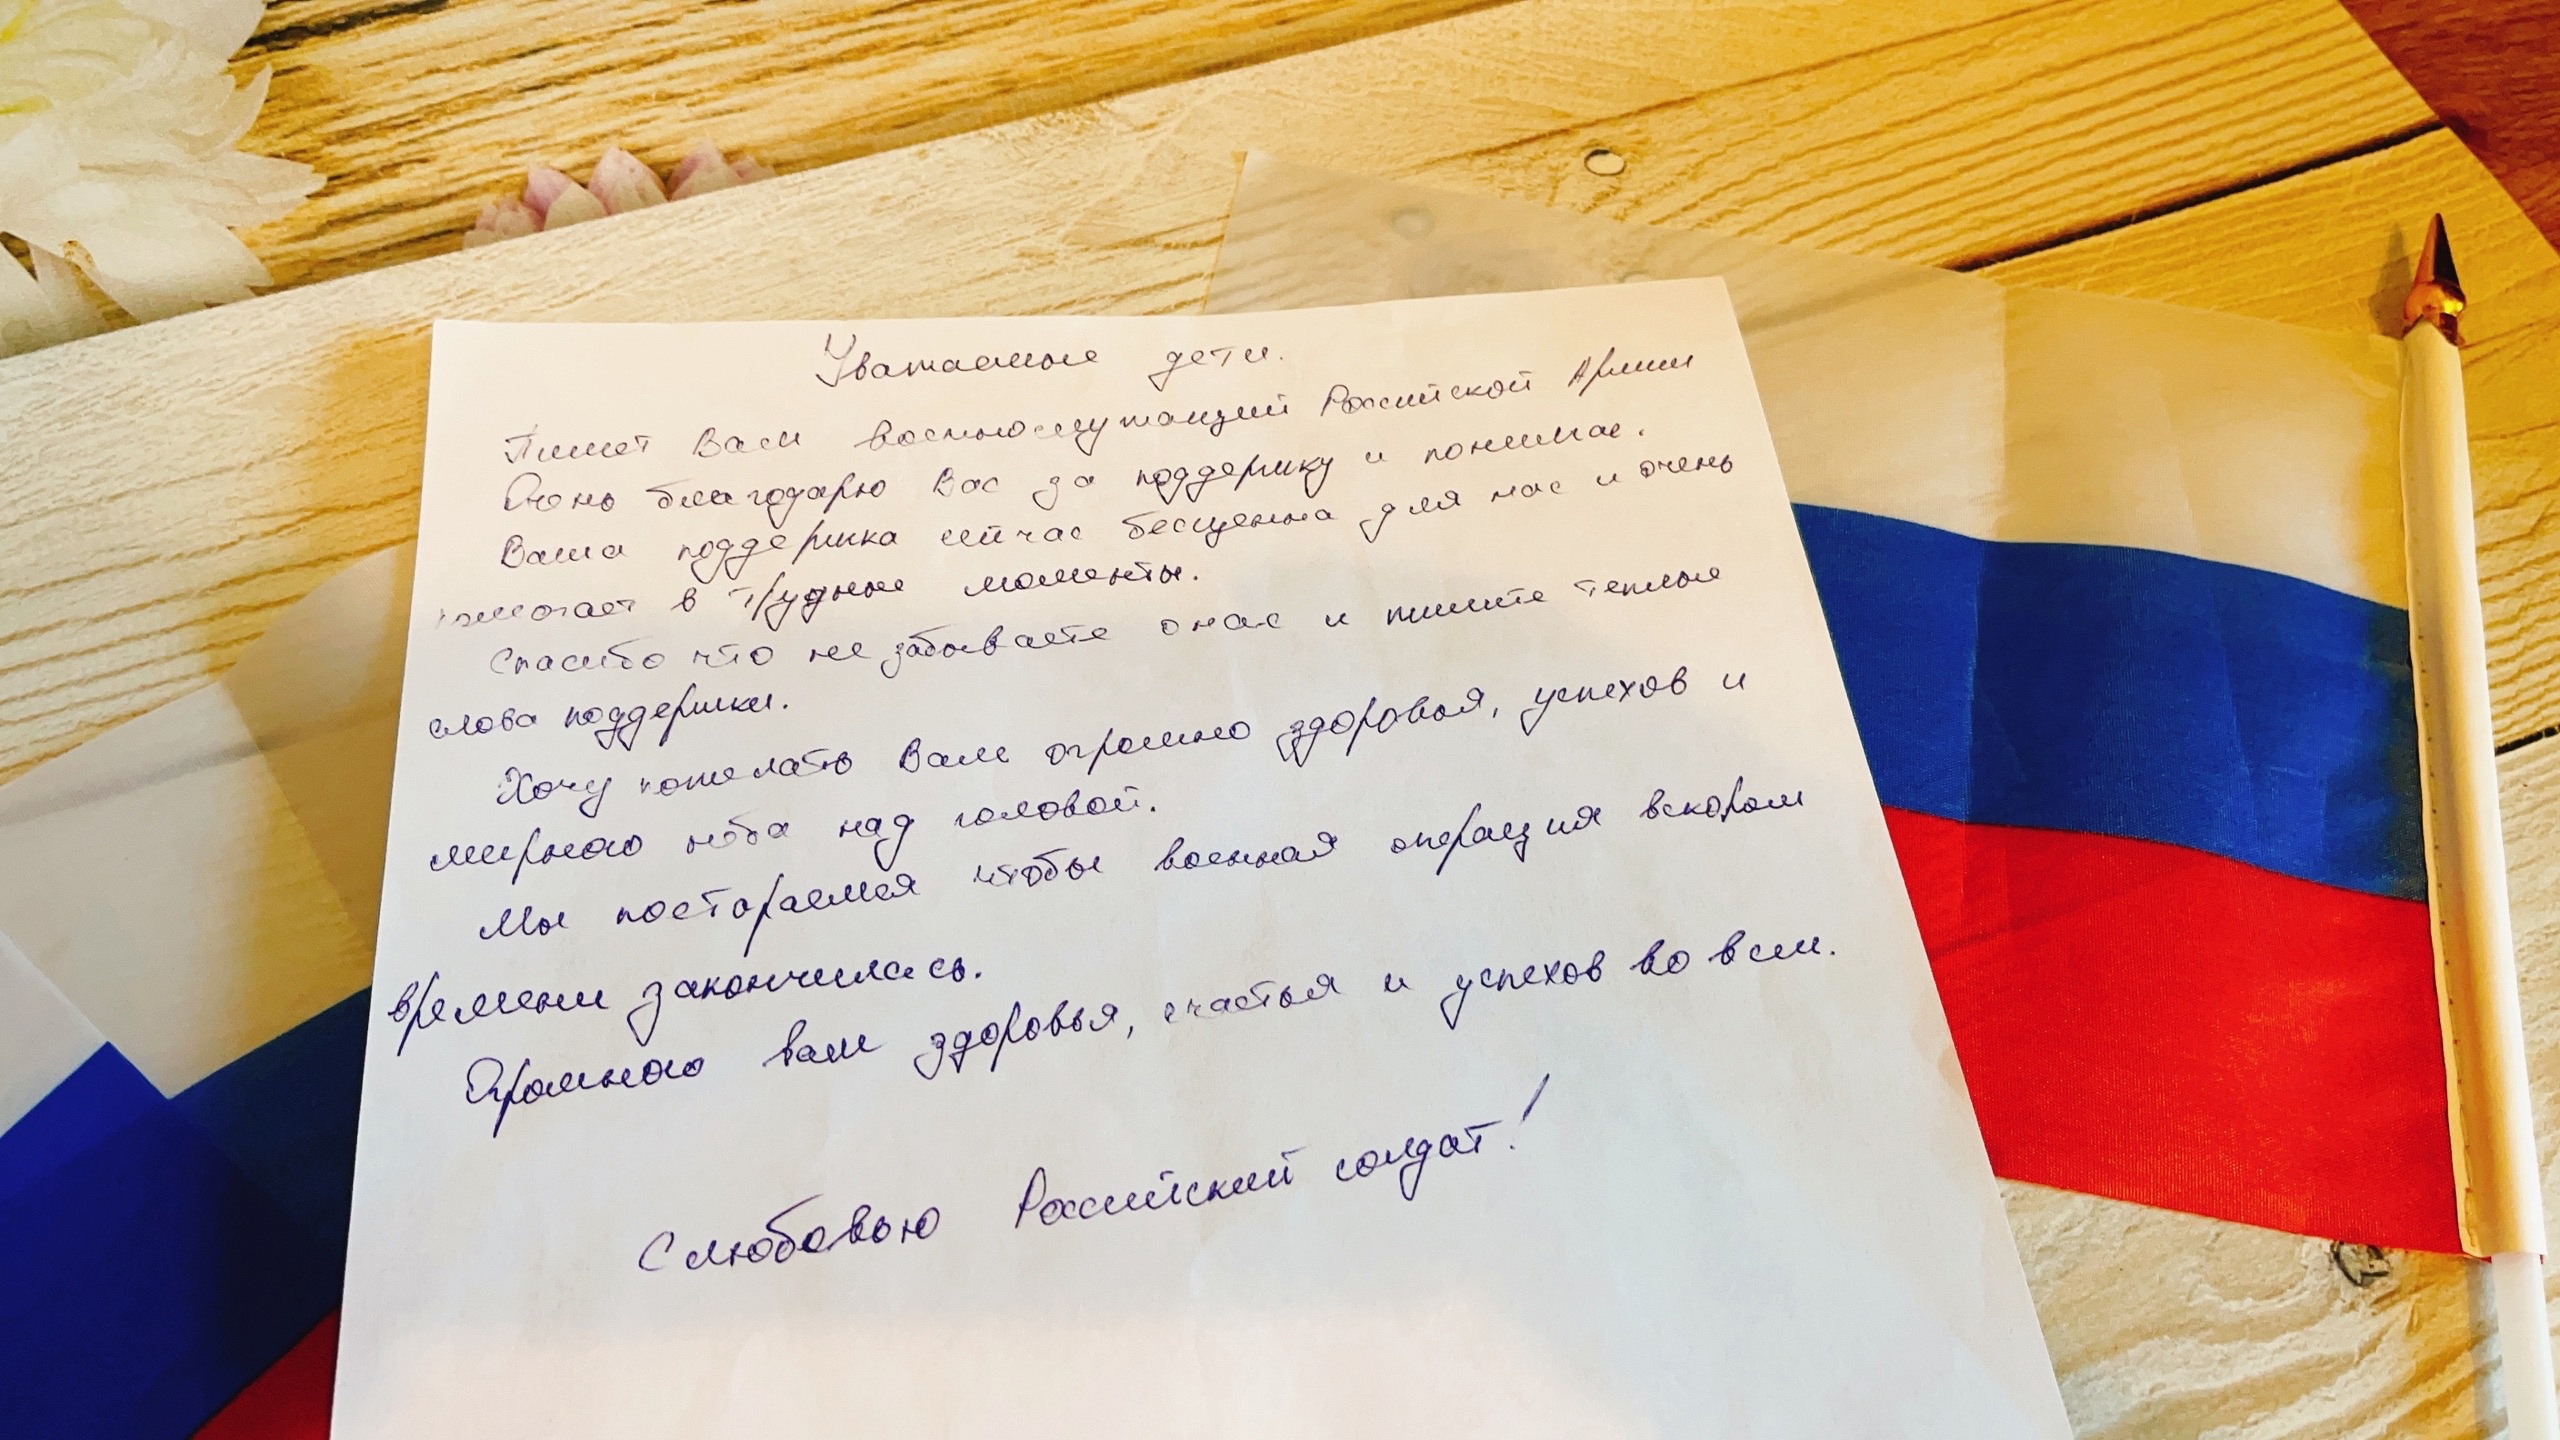 Уважаемые дети.
Пишет Вам военнослужащий Российской Армии
Очень благодарю Вас за поддержку и понимае.
Ваша поддержка сейчас бесценна для нас и очень
помогает в трудные моменты.
Спасибо что не забываете о нас и пишите теплые
слова поддержки.
Хочу пожелать Вам огромно здоровья, успехов и
мирного неба над головой.
Мы постараемся чтобы военная операция вскором
времени закончилась.
Огромного вам здоровья, счастья и успехов во всем.
С любовью Российский солдат!